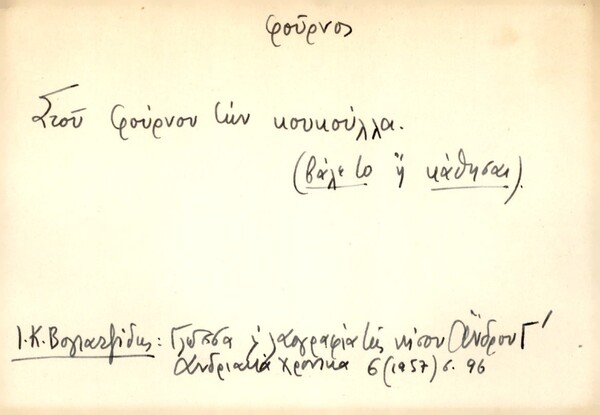 φοῦρνος
Στοῦ φούρνου τὴν κουκούλλα.
(βάλε το ἤ κάθησαι).
Ι.Κ. Βογιατζίδης: Γλῶσσα κ λαογραφία τῆς νήσου Ἄνδρου Γ'
Ἀνδριακά χρονικα 6 (1957) σ. 96